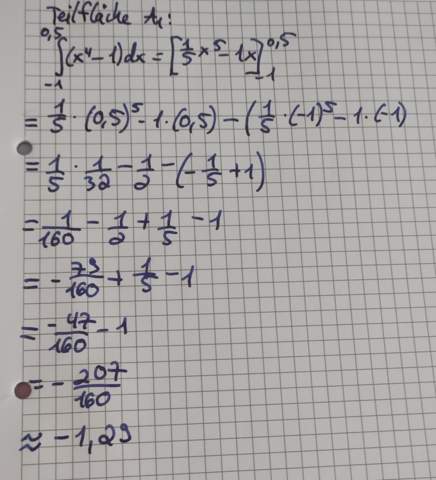 Teilfläche A₁:
∫₋₁^0,5 (x⁴-1)dx = [1/5 x⁵ - 1x]₋₁^0,5
= 1/5 · (0,5)⁵ - 1 · (0,5) - (1/5 · (-1)⁵ - 1 · (-1)
= 1/5 · 1/32 - 1/2 - (-1/5 + 1)
= 1/160 - 1/2 + 1/5 - 1
= - 79/160 + 1/5 - 1
= -47/160 - 1
= - 207/160
≈ -1,29